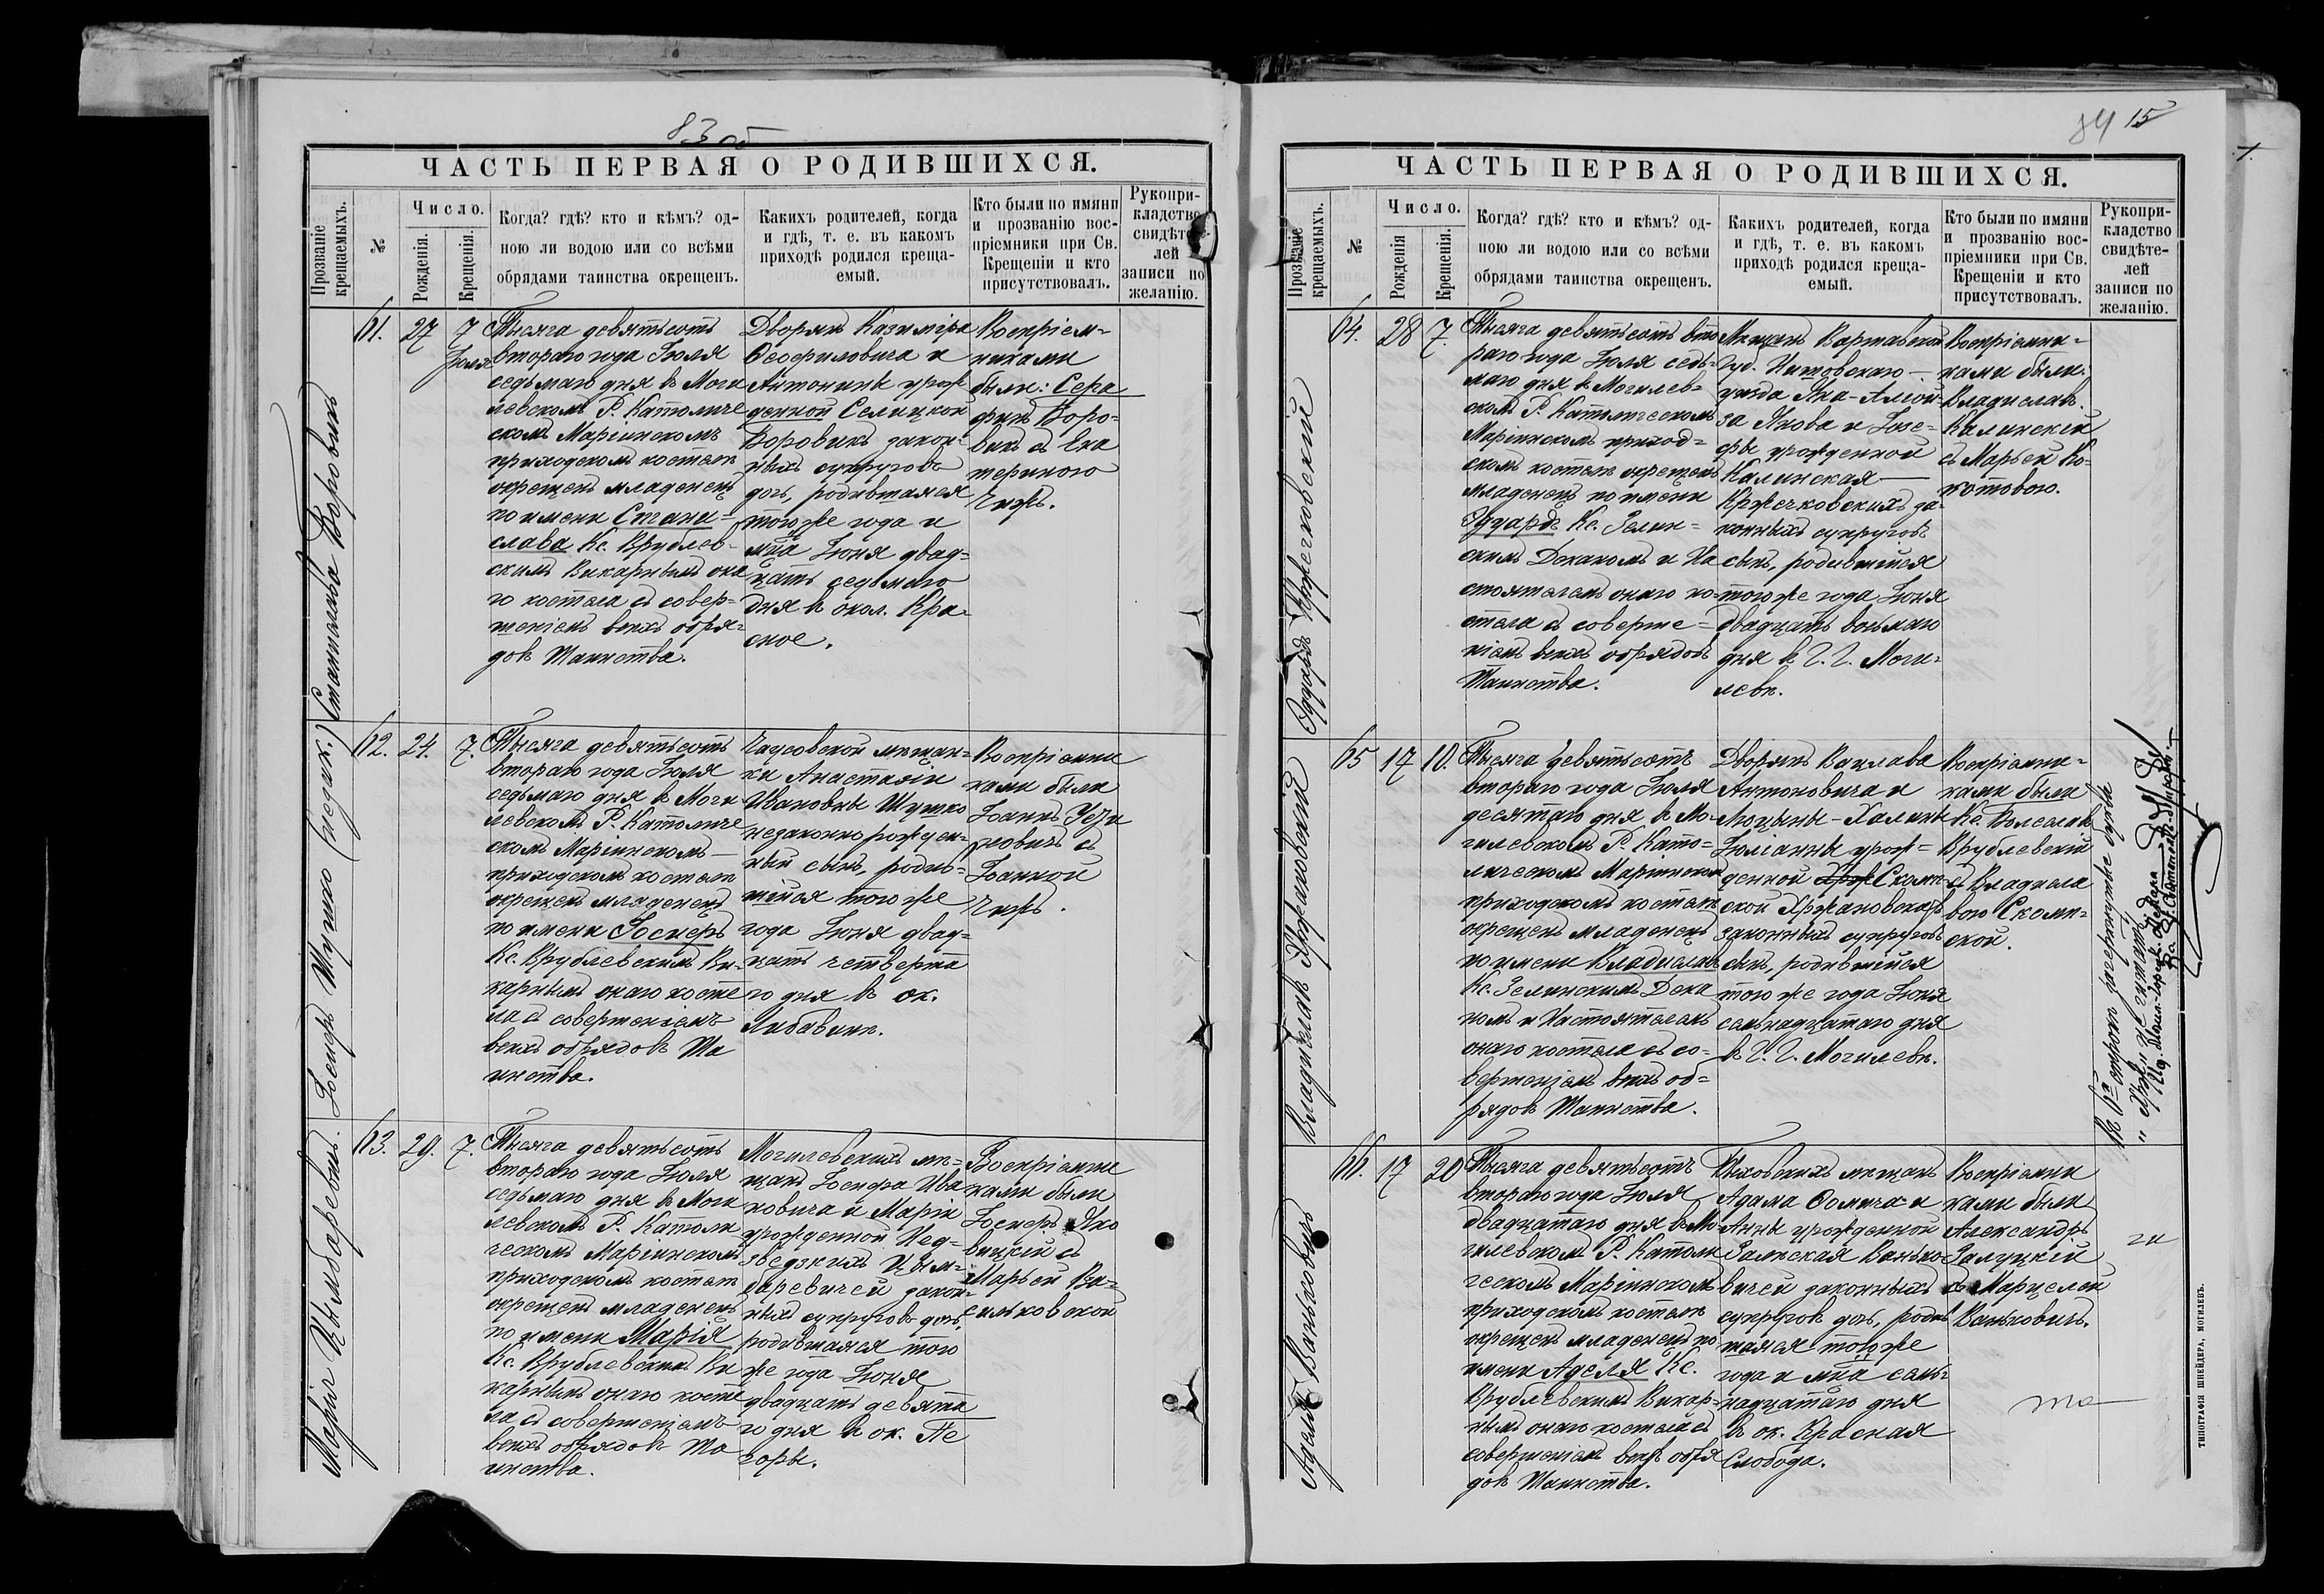 83 об
ЧАСТЬ ПЕРВАЯ О РОДИВШИХСЯ.
Прозваніе крещаемыхъ.
№
Число.
Рожденія.
Крещенія.
Когда? гдѣ? кто и кѣмъ? од-
ною ли водою или со всѣми
обрядами таинства окрещенъ.
Какихъ родителей, когда
и гдѣ, т. е. въ какомъ
приходѣ родился креща-
емый.
Кто были по имяни
и прозванію вос-
пріемники при Св.
Крещеніи и кто
присутствовалъ.
Рукопри-
кладство
свидѣте-
лей
записи по
желанію.
Станислава Боровикъ
61.
27
7
Іюля
Тысяча девятьсотъ
втораго года Іюля
седьмаго дня въ Моги
левскомъ Р. Католиче
скомъ Маріинскомъ
приходскомъ костелѣ
окрещенъ младенецъ
по имени Стани=
слава Кс. Врублев-
скимъ Викарнымъ она
го костела съ совер=
шеніемъ всѣхъ обря=
довъ Таинства.
Дворянъ Казиміра
Ѳеофиловича и
Антонины урож
денной Селицкой
Боровикъ закон-
ныхъ супруговъ
дочь, родившаяся
того же года и
мца Іюня двад-
цать седьмаго
дня въ окол. Кра-
сное.
Воспріем-
никами
были: Сера
финъ Боро-
викъ съ Ека
териною
Чижъ.
Іосифъ Шушко (незак.)
62.
24.
7.
Тысяча девятьсотъ
втораго года Іюля
седьмаго дня въ Моги
левскомъ Р. Католиче
скомъ Маріинскомъ
приходскомъ костелѣ
окрещенъ младенецъ
по имени Іосифъ
Кс. Врублевскимъ Ви-
карнымъ онаго косте
ла съ совершеніемъ
всѣхъ обрядовъ Та
инства.
Чаусовской мѣщан-
ки Анастасіи
Ивановны Шушко
незаконно рожден-
ный сынъ, родив-
шійся того же
года Іюня двад-
цать четверта
го дня въ ок.
Любавинѣ.
Воспріемни
ками были
Іоаннъ
съ
Іоанной
Чижъ.
Марія Цымбаревичъ.
63.
29.
7.
Тысяча девятьсотъ
втораго года Іюля
седьмаго дня въ Моги
левскомъ Р. Католи
ческомъ Маріинскомъ
приходскомъ костелѣ
окрещенъ младенецъ
по имени Марія
Кс. Врублевскимъ Ви
карнымъ онаго косте
ла съ совершеніемъ
всѣхъ обрядовъ Та
инства.
Могилевскихъ мѣ-
щанъ Іосифа Ива
новича и Маріи
урожденной Нед-
звѣдзкихъ Цым-
баревичей закон-
ныхъ супруговъ дочь,
родившаяся того
же года Іюня
двадцать девята
го дня въ ок. Пе
чоры.
Воспріемни
ками были
Іосифъ Яно
вицкій съ
Марьей Ва-
сильковской
84 15
ЧАСТЬ ПЕРВАЯ О РОДИВШИХСЯ.
Прозваніе крещаемыхъ.
№
Число.
Рожденія
Крещенія.
Когда? гдѣ? кто и кѣмъ? од-
ною ли водою или со всѣми
обрядами таинства окрещенъ.
Какихъ родителей, когда
и гдѣ, т. е. въ какомъ
приходѣ родился креща-
емый.
Кто были по имяни
и прозванію вос-
пріемники при Св.
Крещеніи и кто
присутствовалъ.
Рукопри-
кладство
свидѣте-
лей
записи по
желанію.
Эдуардъ Кржечковскій
64.
28
7.
Тысяча девятьсотъ вто
раго года Іюля седь-
маго дня въ Могилев-
скомъ Р. Католическомъ
Маріинскомъ приход-
скомъ костелѣ окрещенъ
младенецъ по имени
Эдуардъ Кс. Зелин=
скимъ Деканомъ и На
стоятелемъ онаго ко-
стела съ соверше=
ніемъ всѣхъ обрядовъ
Таинства.
Мѣщанъ Варшавской
Губ.
уѣзда Яна-Алой-
за Якова и Іозе-
фы урожденной
Калинская
Кржечковскихъ за-
конныхъ супруговъ
сынъ, родившійся
того же года Іюня
двадцать восьмаго
дня въ Г. Г. Моги-
левѣ.
Воспріемни=
ками были:
Владиславъ
Калинскій
съ Марьей Ко-
котовою.
Владиславъ Хржановскій
65
17
10.
Тысяча девятьсотъ
втораго года Іюля
десятаго дня въ Мо-
гилевскомъ Р. Като-
лическомъ Маріинском
приходскомъ костелѣ
окрещенъ младенецъ
по имени Владиславъ
Кс. Зелинскимъ Дека
номъ и Настоятелемъ
онаго костела съ со-
вершеніемъ всѣхъ об-
рядовъ Таинства.
Дворянъ Вацлава
Антоновича и
Люцыны-Халины
Юліанны урож=
денной Скомп-
ской Хржановскихъ
законныхъ супруговъ
сынъ, родившійся
того же года Іюня
семьнадцатаго дня
въ Г. Г. Могилевѣ.
Воспріемни=
ками были
Кс. Болеславъ
Врублевскій
съ Владисла
вою Скомп-
ской.
Въ 6й строкѣ зачеркнутые буквы
„Хрж" не читать
Адель Ваньковичъ
66.
17
20
Тысяча девятьсотъ
втораго года Іюля
двадцатаго дня въ Мо-
гилевскомъ Р. Католи
ческомъ Маріинскомъ
приходскомъ костелѣ
окрещенъ младенецъ по
имени Аделя Кс.
Врублевскимъ Викар-
нымъ онаго костела съ
совершеніемъ всѣхъ обря
довъ Таинства.
Быховскихъ мѣщанъ
Адама Ѳомича и
Анны урожденной
Зальская Ванько-
вичей законныхъ
супруговъ дочь, родив
шаяся того же
года и мца семь-
надцатаго дня
въ ок. Красная
Слобода.
Воспріемни
ками были
Александръ
Залуцкій
съ Марцелей
Ваньковичъ.
ги
та
ТИПОГРАФІЯ ШНЕЙДЕРА, МОГИЛЕВЪ.